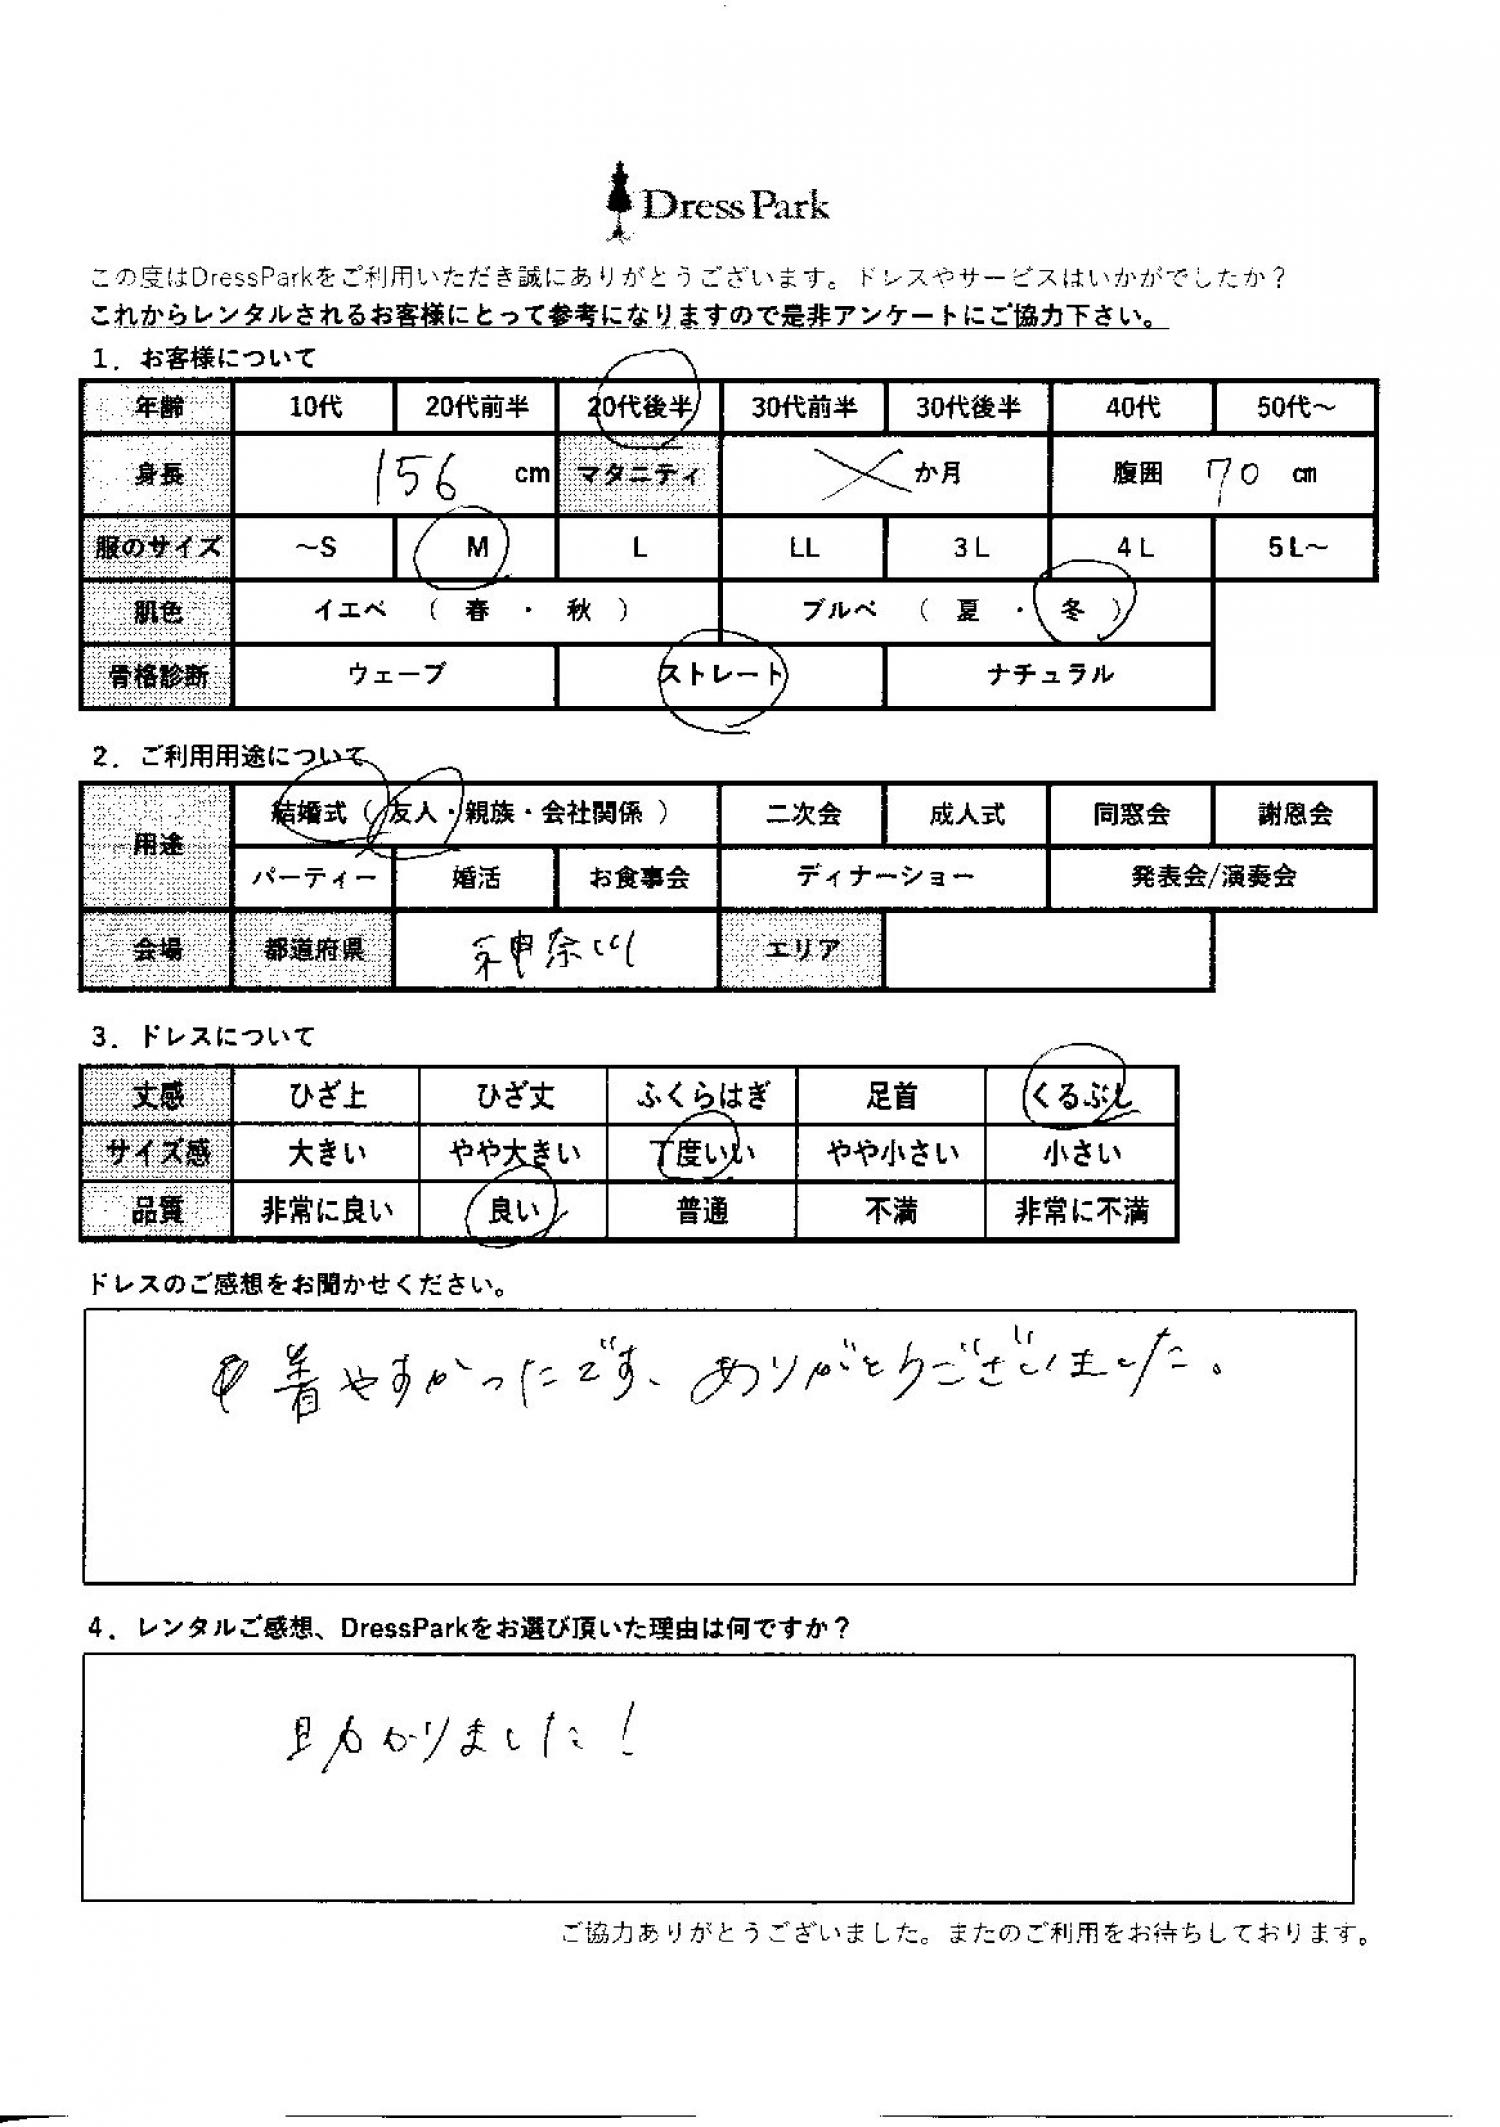 Dress Park
この度はDressParkをご利用いただき誠にありがとうございます。ドレスやサービスはいかがでしたか？
これからレンタルされるお客様にとって参考になりますので是非アンケートにご協力下さい。
1．お客様について
年齢 10代 20代前半 20代後半 30代前半 30代後半 40代 50代～
身長 156 cm マタニティ か月 腹囲 70 cm
服のサイズ ～S M L LL 3L 4L 5L～
肌色 イエベ （ 春 ・ 秋 ） ブルベ （ 夏 ・ 冬 ）
骨格診断 ウェーブ ストレート ナチュラル
2．ご利用用途について
用途 結婚式（ 友人・親族・会社関係 ） 二次会 成人式 同窓会 謝恩会
パーティー 婚活 お食事会 ディナーショー 発表会/演奏会
会場 都道府県 神奈川 エリア
3．ドレスについて
丈感 ひざ上 ひざ丈 ふくらはぎ 足首 くるぶし
サイズ感 大きい やや大きい 丁度いい やや小さい 小さい
品質 非常に良い 良い 普通 不満 非常に不満
ドレスのご感想をお聞かせください。
着やすかったです、ありがとうございました。
4．レンタルご感想、DressParkをお選び頂いた理由は何ですか？
助かりました！
ご協力ありがとうございました。またのご利用をお待ちしております。